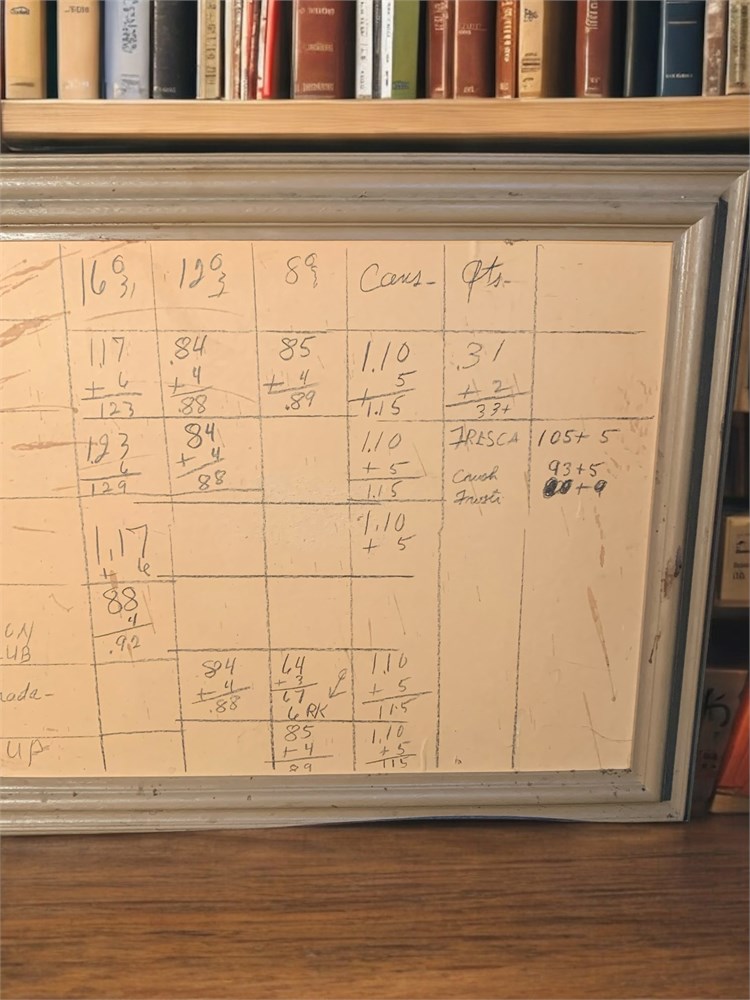 16 oz 12 oz 8 oz Cans- Qts-
1.17 .84 85 1.10 .31
+ 6 + 4 + 4 5 + 2
123 .88 .89 1.15 33+
1.23 84 1.10 FRESCA 105+ 5
6 + 4 + 5 Crush 93+5
129 88 1.15 + 9
1.17 1.10
+ 6 + 5
88
4
ON .92
UB
.84 64 1.10
nada- + 4 + 3 + 5
.88 67 115
6 PK
UP 85 1.10
+ 4 + 5
89 115